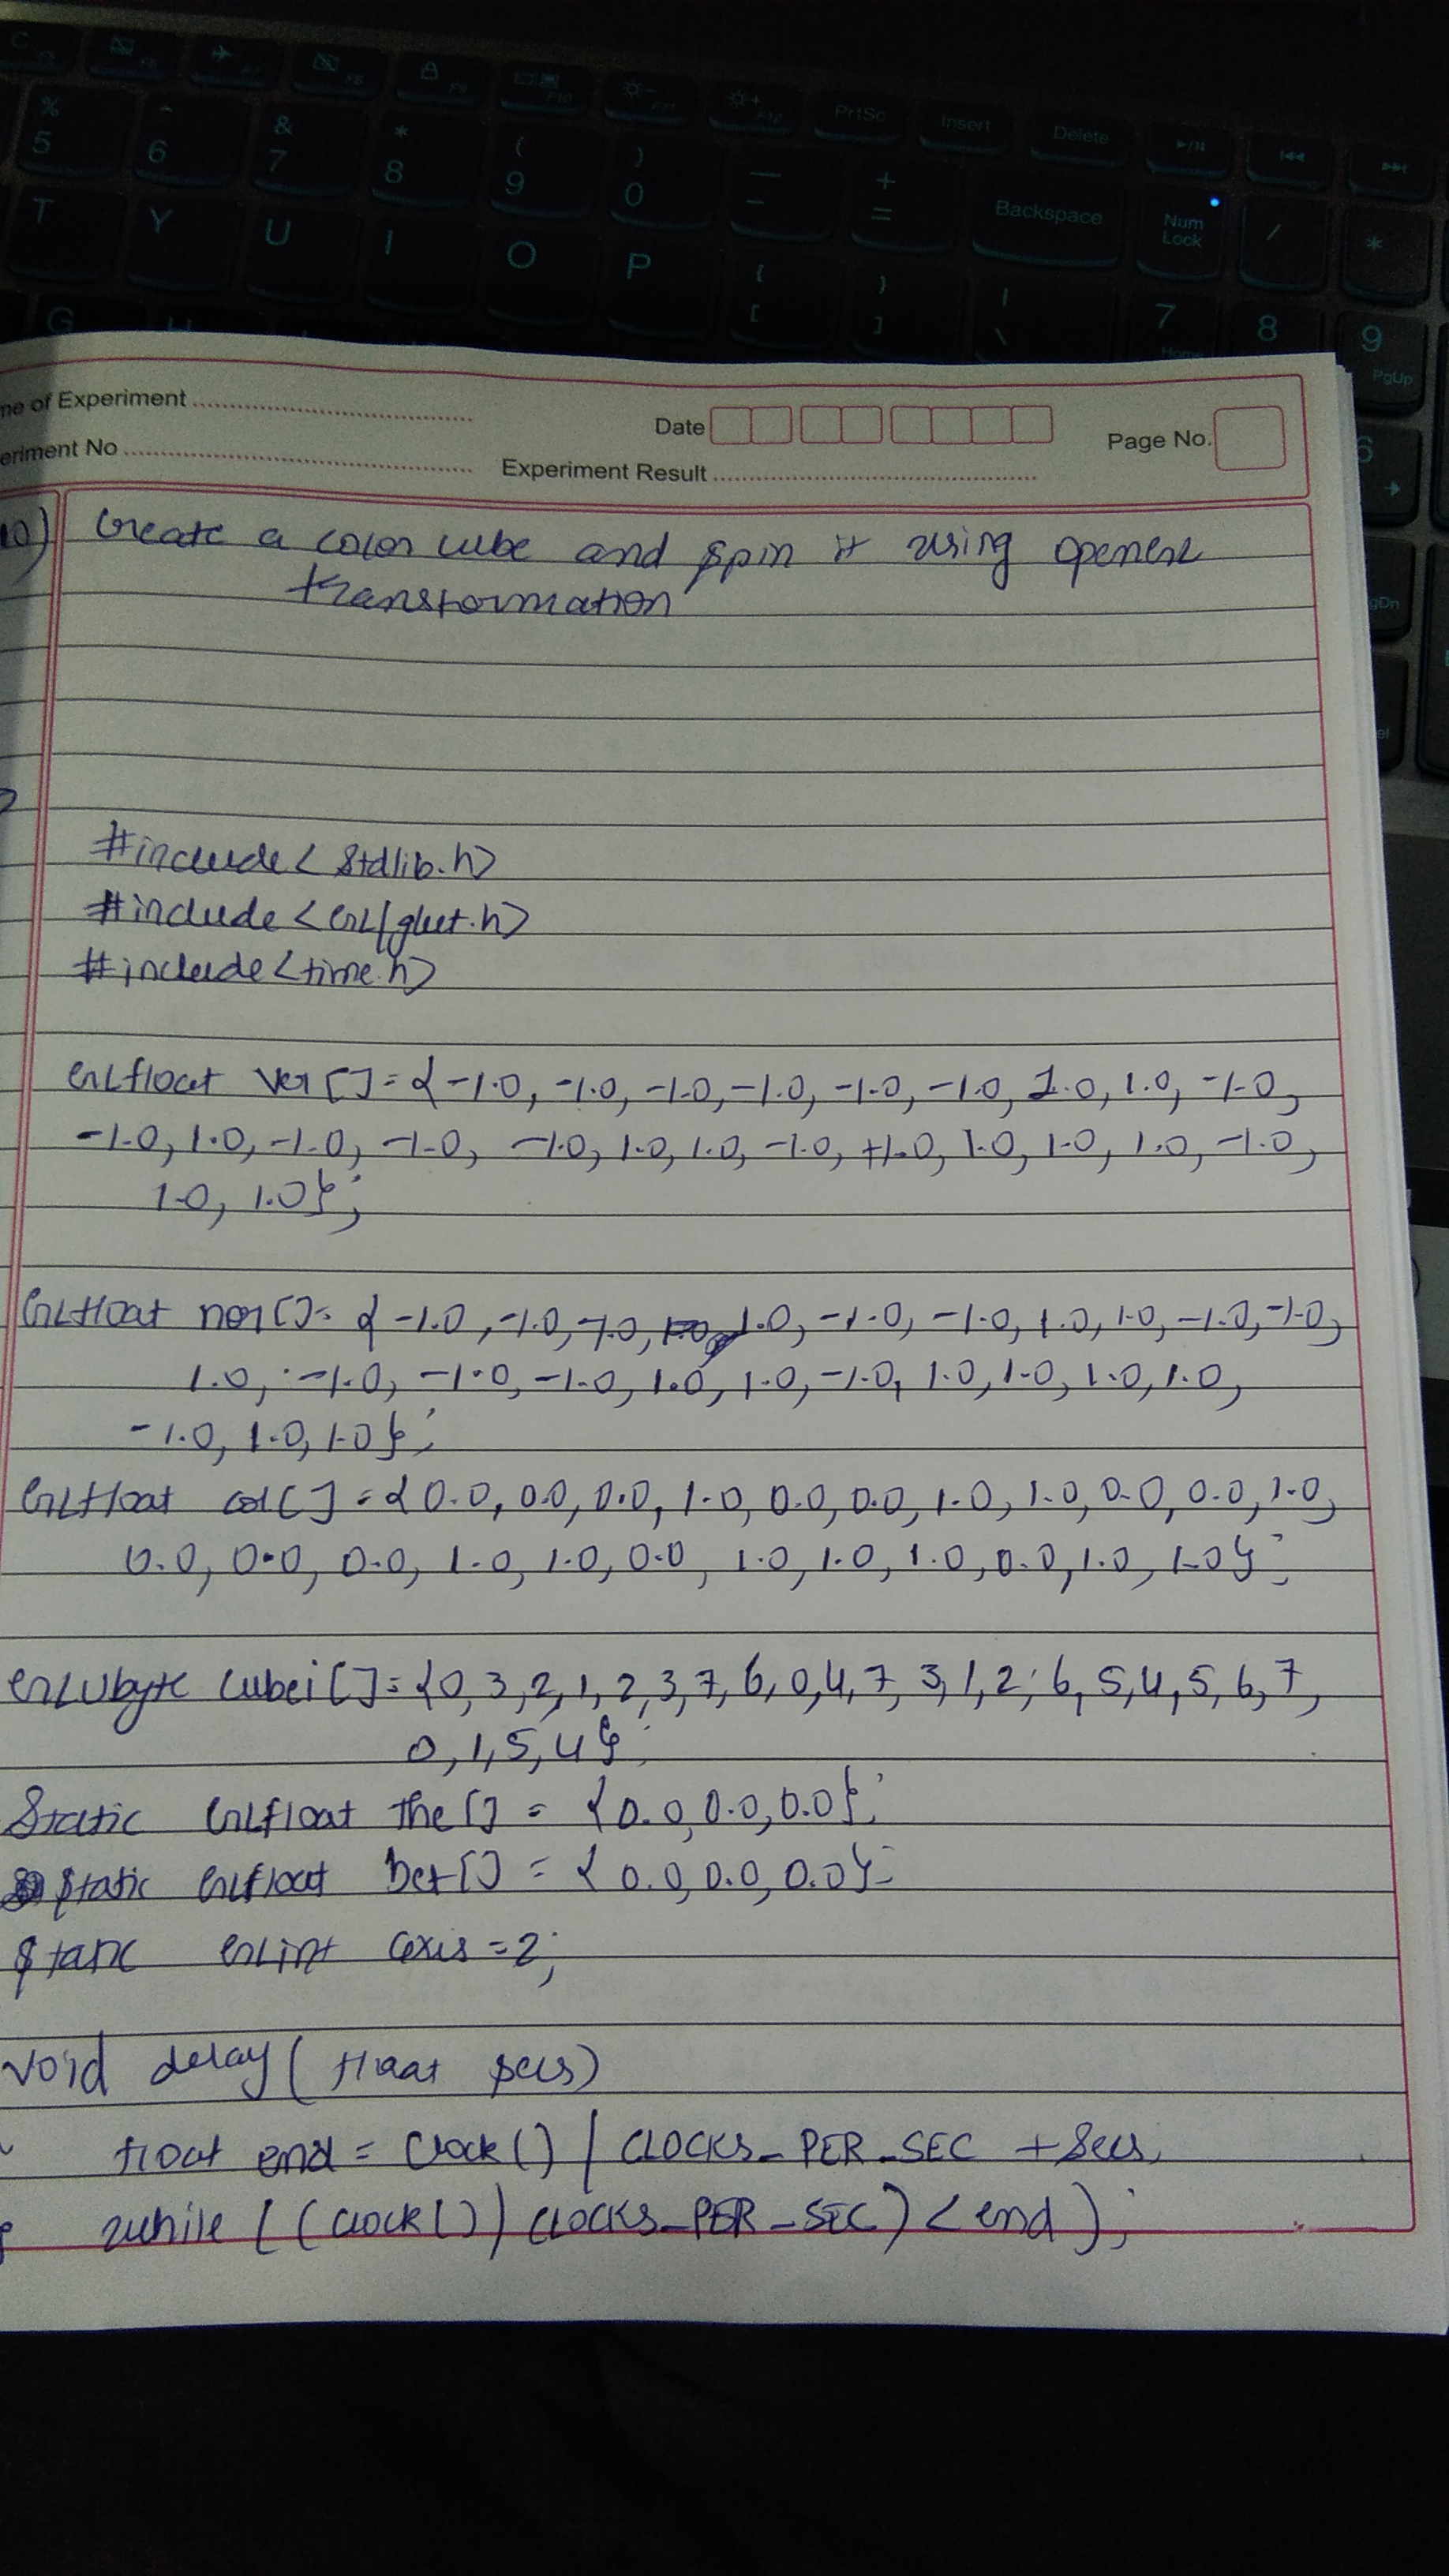 C F5 F6 F7 F8 F9 F10 F11 F12 PrtSc Insert Delete
% 5 ^ 6 & 7 * 8 ( 9 ) 0 — - + = Backspace Num Lock / *
T Y U I O P { [ } ] | \ 7 Home 8 9 PgUp
G H
6
gDn
el
me of Experiment
Date
Page No.
eriment No
Experiment Result
10) Create a color cube and spin it using openGL
transformation
#include< stdlib.h>
#include <GL/glut.h>
#include <time.h>
GLfloat ver[]={-1.0, -1.0, -1.0, -1.0, -1.0, -1.0, 1.0, 1.0, -1.0,
-1.0, 1.0, -1.0, -1.0, -1.0, 1.0, 1.0, -1.0, +1.0, 1.0, 1.0, 1.0, -1.0,
1.0, 1.0};
GLfloat nor[]= {-1.0, -1.0, -1.0, 1.0, -1.0, -1.0, 1.0, 1.0, -1.0, -1.0,
1.0, -1.0, -1.0, -1.0, 1.0, 1.0, -1.0, 1.0, 1.0, 1.0, 1.0,
-1.0, 1.0, 1.0};
GLfloat col[] = {0.0, 0.0, 0.0, 1.0, 0.0, 0.0, 1.0, 1.0, 0.0, 0.0, 1.0,
0.0, 0.0, 0.0, 1.0, 1.0, 0.0, 1.0, 1.0, 1.0, 0.0, 1.0, 1.0};
GLubyte cubei[]={0,3,2,1,2,3,7,6,0,4,7,3,1,2,6,5,4,5,6,7,
0,1,5,4};
Static GLfloat the[] = {0.0, 0.0, 0.0};
static GLfloat bet[] = {0.0, 0.0, 0.0};
static GLint axis=2;
void delay(float secs)
float end = clock() / CLOCKS_PER_SEC + secs;
while ((clock() / CLOCKS_PER_SEC) < end);